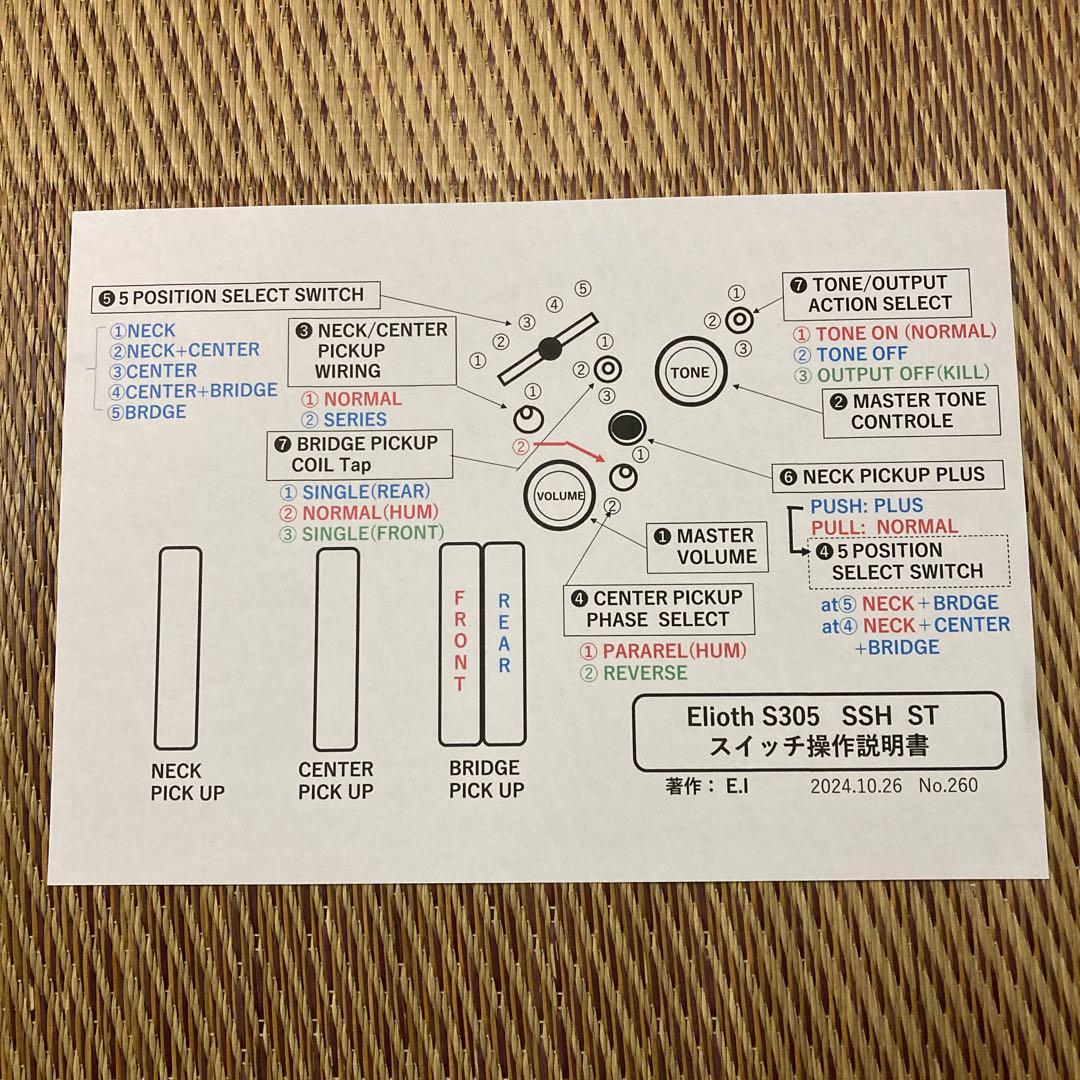 ❺ 5 POSITION SELECT SWITCH
①NECK
②NECK+CENTER
③CENTER
④CENTER+BRIDGE
⑤BRDGE
❸ NECK/CENTER
PICKUP
WIRING
① NORMAL
② SERIES
❼ BRIDGE PICKUP
COIL Tap
① SINGLE(REAR)
② NORMAL(HUM)
③ SINGLE(FRONT)
①
②
③
④
⑤
①
②
③
①
②
①
②
①
②
③
TONE
VOLUME
❼ TONE/OUTPUT
ACTION SELECT
① TONE ON (NORMAL)
② TONE OFF
③ OUTPUT OFF(KILL)
❷ MASTER TONE
CONTROLE
❻ NECK PICKUP PLUS
PUSH: PLUS
PULL: NORMAL
❹ 5 POSITION
SELECT SWITCH
at⑤ NECK+BRDGE
at④ NECK+CENTER
+BRIDGE
❶ MASTER
VOLUME
❹ CENTER PICKUP
PHASE SELECT
① PARAREL(HUM)
② REVERSE
FRONT
REAR
NECK
PICK UP
CENTER
PICK UP
BRIDGE
PICK UP
Elioth S305 SSH ST
スイッチ操作説明書
著作： E.I 2024.10.26 No.260